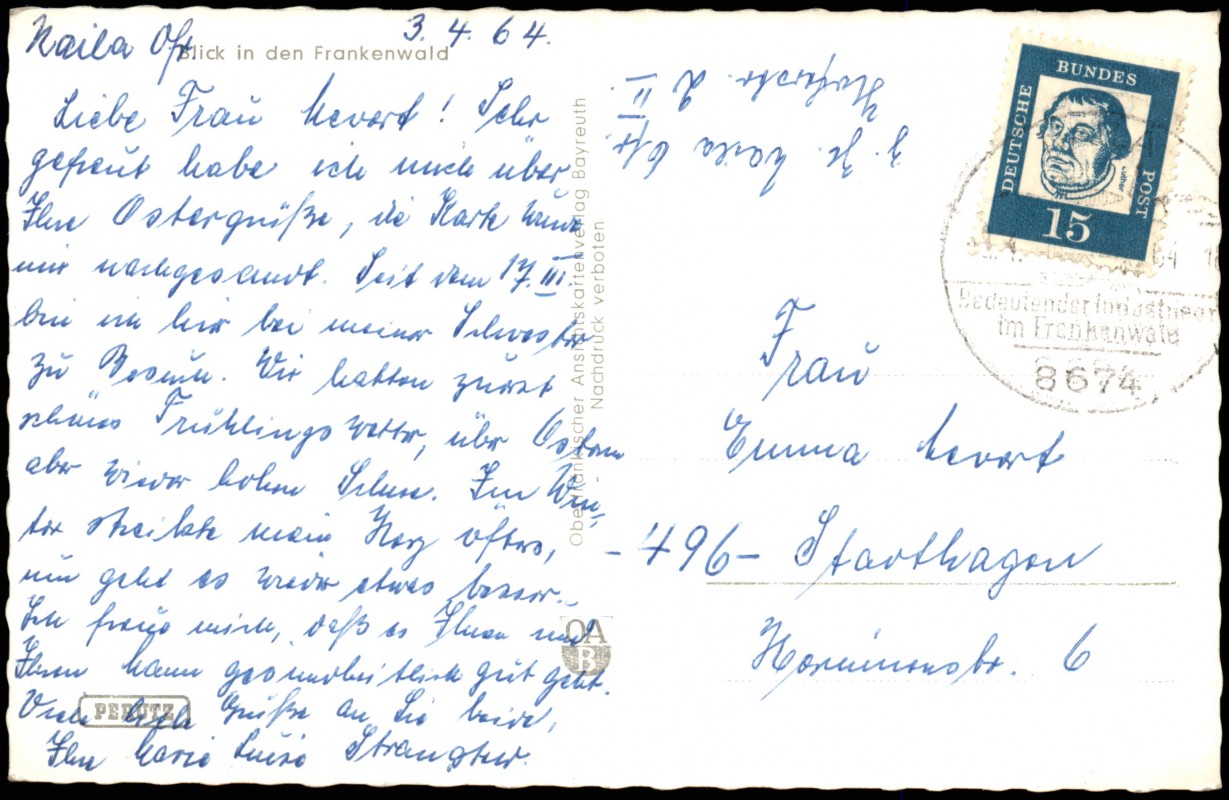 Naila Ofr. 3. 4. 64.
Blick in den Frankenwald
Liebe Frau Severt! Sehr
gefreut habe ich mich über
Ihre Ostergrüße, die Karte wurde
mir nachgesandt. Seit dem 17. III.
bin ich hier bei meiner Schwester
zu Besuch. Wir hatten zuerst
schönes Frühlingswetter, über Ostern
aber wieder hohen Schnee. Im Win-
ter streikte mein Herz öfters,
nun geht es wieder etwas besser.
Ich freue mich, daß es Ihnen und
Ihrem Mann gesundheitlich gut geht.
Viele liebe Grüße an Sie beide,
Ihre Marie Luise
z. Zt. Naila Ofr.
II
Oberfränkischer Ansichtskartenverlag Bayreuth
Nachdruck verboten
OA
B
PERUTZ
DEUTSCHE
BUNDES
POST
Luther
15
64
Bedeutender Industrieort
im Frankenwald
8674
Frau
Emma Severt
-496- Stadthagen
6